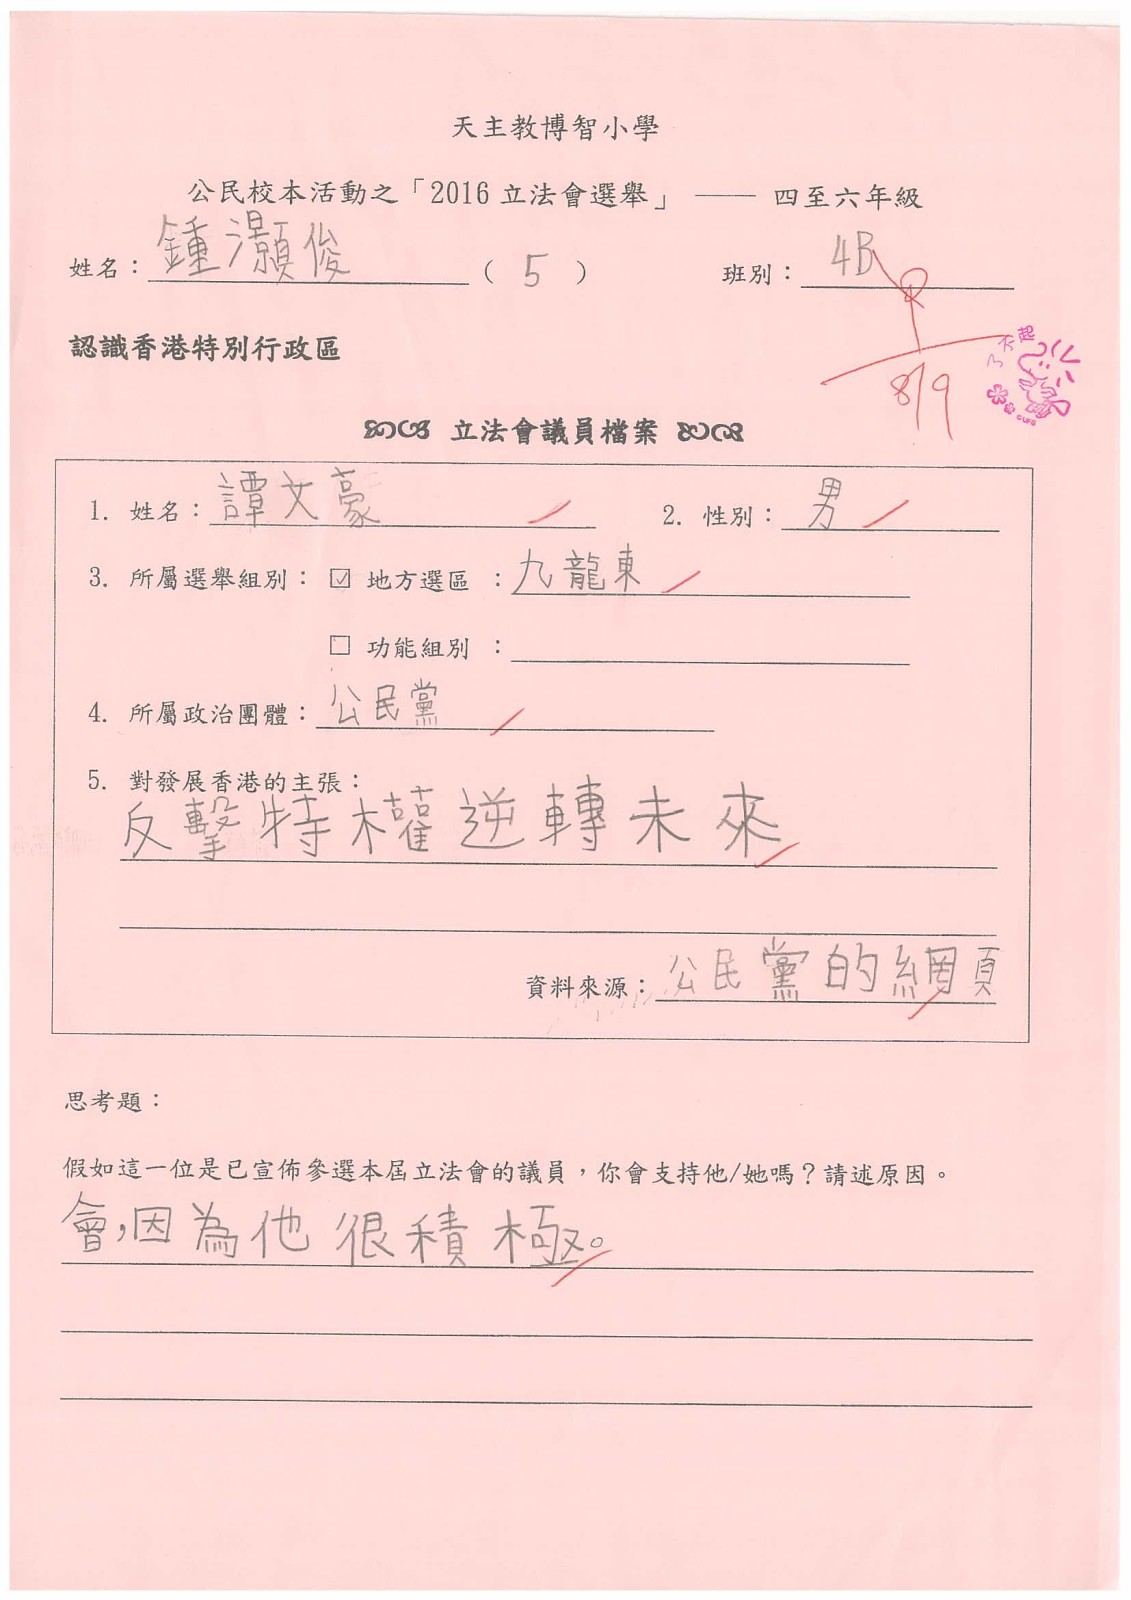 天主教博智小學
公民校本活動之「2016 立法會選舉」 —— 四至六年級
姓名：鍾灝俊（ 5 ） 班別：4B
8/9
了不起
認識香港特別行政區
立法會議員檔案
1. 姓名：譚文豪 2. 性別：男
3. 所屬選舉組別： ☑ 地方選區 ：九龍東
☐ 功能組別 ：
4. 所屬政治團體：公民黨
5. 對發展香港的主張：
反擊特權逆轉未來
資料來源：公民黨的網頁
思考題：
假如這一位是已宣佈參選本屆立法會的議員，你會支持他/她嗎？請述原因。
會，因為他很積極。